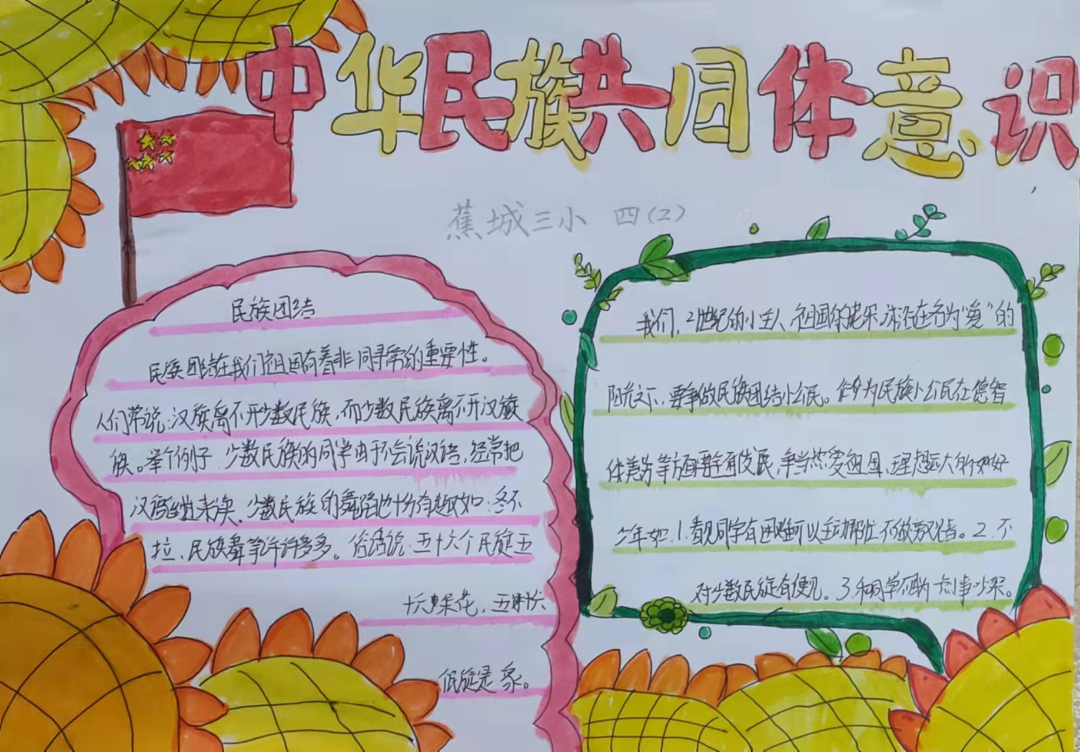 中华民族共同体意识
蕉城三小 四(2)
民族团结
民族团结在我们祖国有着非同寻常的重要性。
人们常说:汉族离不开少数民族,而少数民族离不开汉族
族。举个例子 少数民族的同学由于不会说汉语,经常把
汉语 少数民族的舞蹈也十分有趣如:冬不
拉、民族舞等许许多多。俗话说:五十六个民族五
十六 花,五 六
族是 家。
我们,21世纪的小主人,祖国的 在名为“爱”的
阳光之下,要争做民族团结小公民。作为民族小公民在德智
体美劳等方面要全面发展,争当热爱祖国、理想远大的好
少年如.1.看见同学有困难可以主动帮忙不做 。2.不
对少数民族有偏见。3.和同学不 大事 。